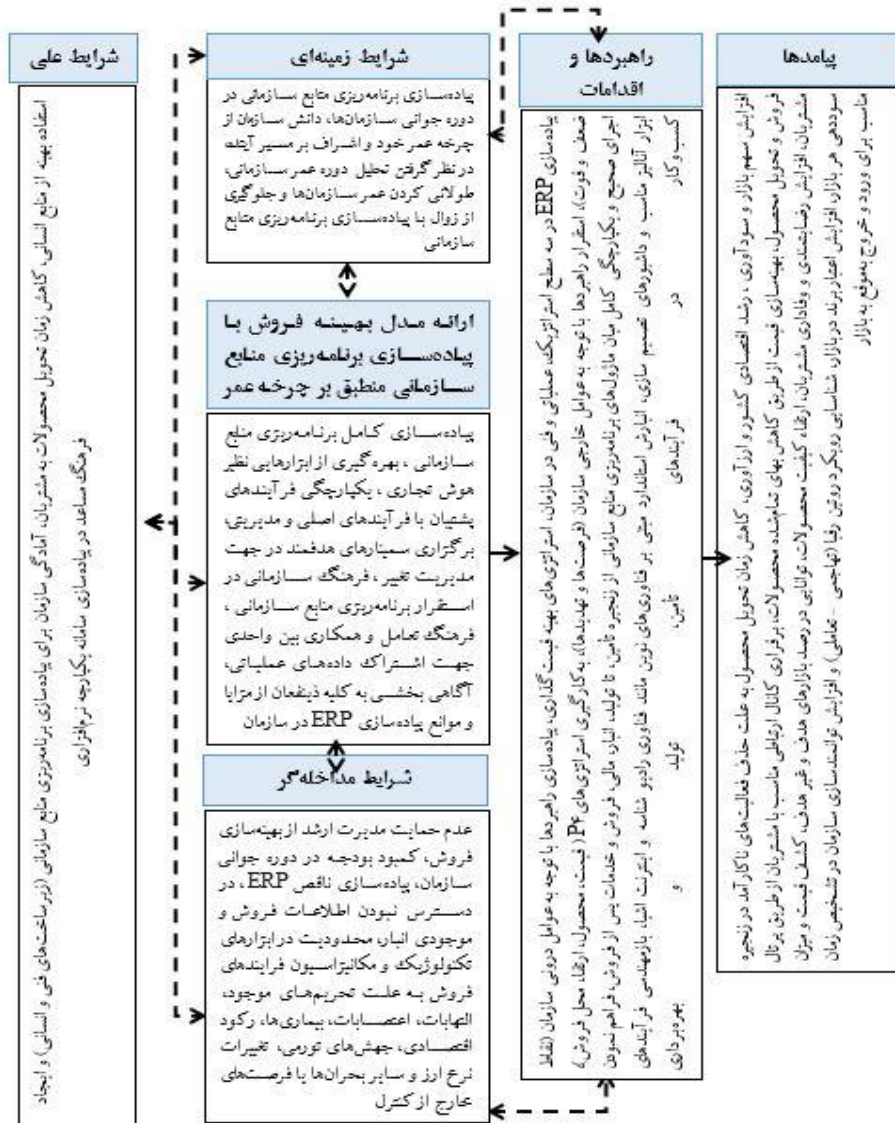 شرایط علی
استفاده بهینه از منابع انسانی، کاهش زمان تحویل محصولات به مشتریان، آمادگی سازمان برای پیاده‌سازی برنامه‌ریزی منابع سازمانی (زیرساخت‌های فنی و انسانی) و ایجاد
فرهنگ مساعد در پیاده‌سازی سامانه یکپارچه نرم‌افزاری
شرایط زمینه‌ای
پیاده‌سازی برنامه‌ریزی منابع سازمانی در
دوره جوانی سازمان‌ها، دانش سازمان از
چرخه عمر خود و اشراف بر مسیر آینده،
در نظر گرفتن تحلیل دوره عمر سازمانی،
طولانی کردن عمر سازمان‌ها و جلوگیری
از زوال با پیاده‌سازی برنامه‌ریزی منابع
سازمانی
ارائه مدل بهینه فروش با
پیاده‌سازی برنامه‌ریزی منابع
سازمانی منطبق بر چرخه عمر
پیاده‌سازی کامل برنامه‌ریزی منابع
سازمانی ، بهره گیری از ابزارهایی نظیر
هوش تجاری ، یکپارچگی فرآیندهای
پشتیبان با فرآیندهای اصلی و مدیریتی،
برگزاری سمینارهای هدفمند در جهت
مدیریت تغییر ، فرهنگ سازمانی در
استقرار برنامه‌ریزی منابع سازمانی ،
فرهنگ تعامل و همکاری بین واحدی
جهت اشتراک داده‌های عملیاتی،
آگاهی بخشی به کلیه ذینفعان از مزایا
و موانع پیاده‌سازی ERP در سازمان
شرایط مداخله‌گر
عدم حمایت مدیرت ارشد از بهینه‌سازی
فروش، کمبود بودجه در دوره جوانی
سازمان، پیاده‌سازی ناقص ERP ، در
دسترس نبودن اطلاعات فروش و
موجودی انبار، محدودیت در ابزارهای
تکنولوژیک و مکانیزاسیون فرایندهای
فروش به علت تحریم‌های موجود،
التهابات، اعتصابات، بیماری‌ها، رکود
اقتصادی، جهش‌های تورمی، تغییرات
نرخ ارز و سایر بحران‌ها یا فرصت‌های
خارج از کنترل
راهبردها و
اقدامات
پیاده‌سازی ERP در سه سطح استراتژیک، عملیاتی و فنی در سازمان، استراتژی‌های بهینه قیمت گذاری، پیاده‌سازی راهبردها با توجه به عوامل درونی سازمان (نقاط
ضعف و قوت)، استقرار راهبردها با توجه به عوامل خارجی سازمان (فرصت‌ها و تهدیدها)، به‌کارگیری استراتژی‌های P۴ ( قیمت، محصول، ارتقا، محل فروش)،
اجرای صحیح و یکپارچگی کامل میان ماژول‌های برنامه‌ریزی منابع سازمانی از زنجیره تامین، تا تولید، انبار، مالی، فروش و خدمات پس از فروش، فراهم نمودن
ابزار آنالیز مناسب و داشبورهای تصمیم سازی، انبارش استاندارد مبتنی بر فناوری‌های نوین مانند فناوری رادیو شناسه و اینترنت اشیا، بازمهندسی فرآیندهای
کسب‌وکار در فرآیندهای تامین، تولید و بهره‌برداری
پیامدها
افزایش سهم بازار و سودآوری ، رشد اقتصادی کشور و ارزآوری، کاهش زمان تحویل محصول به علت حذف فعالیت‌های ناکارآمد در زنجیره
فروش و تحویل محصول، بهینه‌سازی قیمت از طریق کاهش بهای تمام‌شده محصولات، برقراری کانال ارتباطی مناسب با مشتریان از طریق پرتال
مشتریان، افزایش رضایتمندی و وفاداری مشتریان، ارتقاء کیفیت محصولات، توانایی در رصد بازارهای هدف و غیر هدف، کشف قیمت و میزان
سوددهی هر بازار، افزایش اعتبار برند در بازار، شناسایی رویکرد روتین رقبا (تهاجمی - تعاملی) و افزایش توانمندسازی سازمان در تشخیص زمان
مناسب برای ورود و خروج به‌موقع به بازار